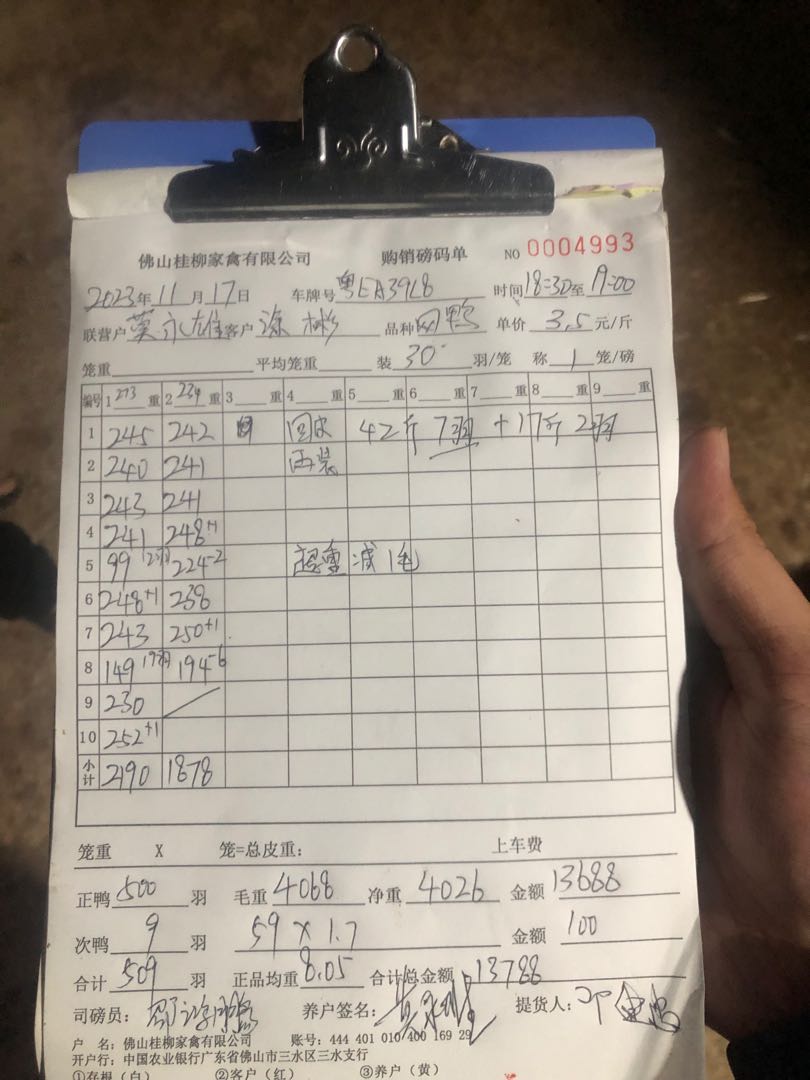 佛山桂柳家禽有限公司 购销磅码单 NO 0004993
2023年11月17日 车牌号 粤EA3918 时间18:30至19:00
联营户 莫永雄 客户 涂彬 品种 鸭 单价 3.5 元/斤
笼重 平均笼重 装 30 羽/笼 称 1 笼/磅
编号 1 273 重 2 234 重 3 重 4 重 5 重 6 重 7 重 8 重 9 重
1 245 242 回皮 42斤 7羽 + 17斤 2羽
2 240 241 西装
3 243 241
4 241 248+1
5 99 12羽 224-2 超重减1毛
6 248+1 238
7 243 250+1
8 149 19羽 194-6
9 230
10 252+1
小计 2190 1878
笼重 X 笼=总皮重: 上车费
正鸭 500 羽 毛重 4068 净重 4026 金额 13688
次鸭 9 羽 59 x 1.7 金额 100
合计 509 羽 正品均重 8.05 合计总金额 13788
司磅员: 养户签名: 提货人:
户 名: 佛山桂柳家禽有限公司 账号: 444 401 010 400 169 29
开户行: 中国农业银行广东省佛山市三水区三水支行
①存根(白) ②客户(红) ③养户(黄)